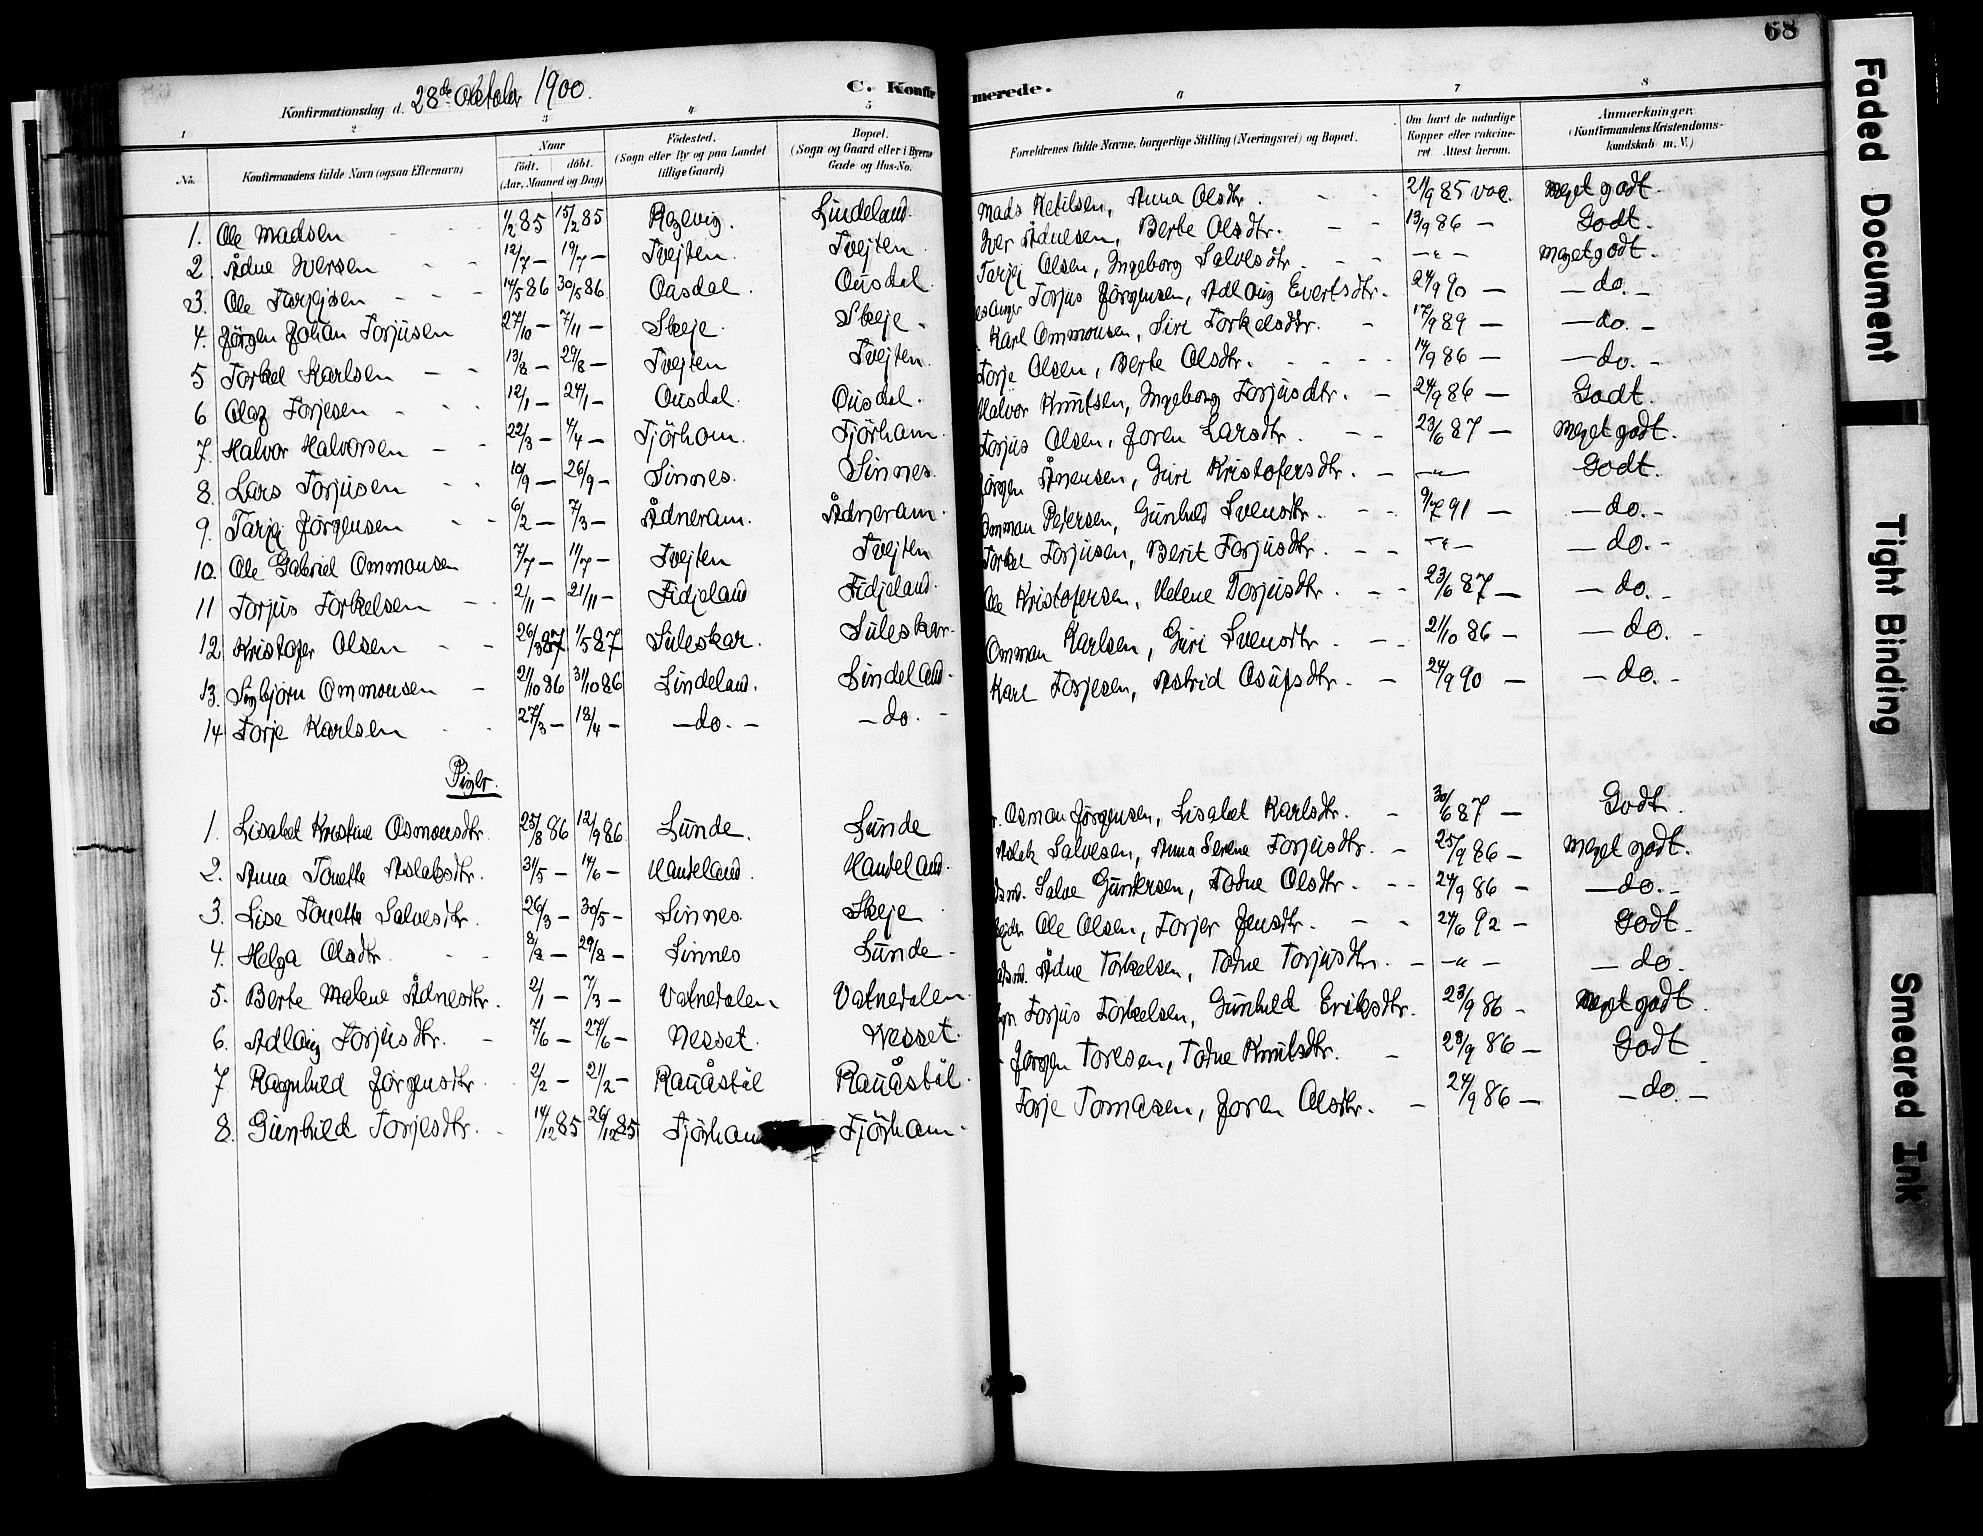 68
Konfirmationsdag d. 28de Oktober 1900.
C. Konfirmerede.
1 2 3 4 5 6 7 8
No. Konfirmandens fulde Navn (ogsaa Efternavn) Naar født. døbt. (Aar, Maaned og Dag) Fødested. (Sogn eller By og paa Landet tillige Gaard) Bopæl. (Sogn og Gaard eller i Byerne Gade og Hus-No. Forældrenes fulde Navne, borgerlige Stilling (Næringsvei) og Bopæl. Om havt de naturlige Kopper eller vaccineret. Attest herom. Anmerkninger. (Konfirmandens Kristendomskundskab m. V.)
1. Ole Madsen 1/2 85 15/2 85 Regevig. Lindeland. Mads Ketilsen, Anna Olsdtr. 21/9 85 vac. Meget godt.
2 Ådne Iversen 12/7 — 19/7 — Tvejten. Tvejten. Iver Ådnesen, Berte Olsdtr. 13/9 86 — Godt.
3. Ole Tarjejsen 14/5 86 30/5 86 Ousdal. Ousdal. Tarjej Olsen, Ingeborg Salvesdtr. —"— Meget godt.
4. Jörgen Johan Torjusen 27/10 — 7/11 — Skeje. Skeje. Torjus Jörgensen, Adlaug Evertsdtr. 24/9 90 — —do.—
5 Torkel Karlsen 13/8 — 29/8 — Tvejten Tvejten. Karl Ommonsen, Siri Torkelsdtr. 17/9 89 — —do.—
6 Olaf Torjesen 12/1 — 24/1 — Ousdal. Ousdal. Torje Olsen, Berte Olsdtr. 14/9 86 — —do.—
7. Halvor Halvorsen 22/3 — 4/4 — Tjörham. Tjörham. Halvor Knutsen, Ingeborg Torjusdtr. 24/9 86 — Godt.
8. Lars Torjusen 10/9 — 26/9 — Sinnes. Sinnes. Torjus Olsen, Joren Larsdtr. 23/6 87 — Meget godt.
9. Tarjej Jörgensen 6/2 — 7/3 — Ådneram. Ådneram. Jörgen Ånensen, Guri Kristofersdtr. —"— Godt.
10. Ole Gabriel Ommonsen 7/7 — 11/7 — Tvejten Tvejten Omman Pedersen, Gunhild Svensdtr. 9/7 91 — —do.—
11 Torjus Torkelsen 2/11 — 21/11 — Fidjeland Fidjeland. Torkel Torjusen, Berit Torjusdtr. —"— —do.—
12 Kristofer Olsen 26/3 87 1/5 87 Suleskar. Suleskar. Ole Kristofersen, Helene Torjusdtr. 23/6 87 — —do.—
13. Ommonsen 21/10 86 31/10 86 Lindeland. Lindeland. Omman Karlsen, Guri Svensdtr. 21/10 86 — —do.—
14 Torje Karlsen 27/3 — 18/4 — —do.— —do.— Karl Torjesen, Astrid Osufsdtr. 24/9 90 — —do.—
Piger.
1. Lisabet Kristine Osmonsdtr. 25/8 86 12/9 86 Lunde. Lunde Osman Jörgensen, Lisabet Karlsdtr. 30/6 87 — Godt.
2. Anna Tonette Aslaksdtr. 31/5 — 14/6 — Handeland. Handeland. Aslak Salvesen, Anna Serene Torjusdtr. 25/9 86 — Meget godt.
3. Lise Tonette Salvesdtr. 26/3 — 30/5 — Sinnes Skeje Salve Gundersen, Todne Olsdtr. 24/9 86 — —do.—
4. Helga Olsdtr. 8/8 — 29/8 — Sinnes Lunde Ole Olsen, Torjer Jensdtr. 24/6 92 — Godt.
5. Berte Malene Ådnesdtr. 2/1 — 7/3 — Vatnedalen Vatnedalen. Ådne Torkelsen, Todne Torjusdtr. —"— —do.
6. Adlaug Torjusdtr. 7/6 — 27/6 — Nesset. Nesset. Torjus Torkelsen, Gunhild Eriksdtr. 23/9 86 — Meget godt.
7 Ragnhild Jörgensdtr. 2/2 — 21/2 — Rauåstöl Rauåstöl. Jörgen Toresen, Todne Knutsdtr. 28/9 86 — Godt
8. Gunhild Torjesdtr. 14/12 85 26/12 85 Tjörham Tjörham. Torje Tomasen, Joren Olsdtr. 24/9 86 — —do.—
Faded Document
Tight Binding
Smeared Ink